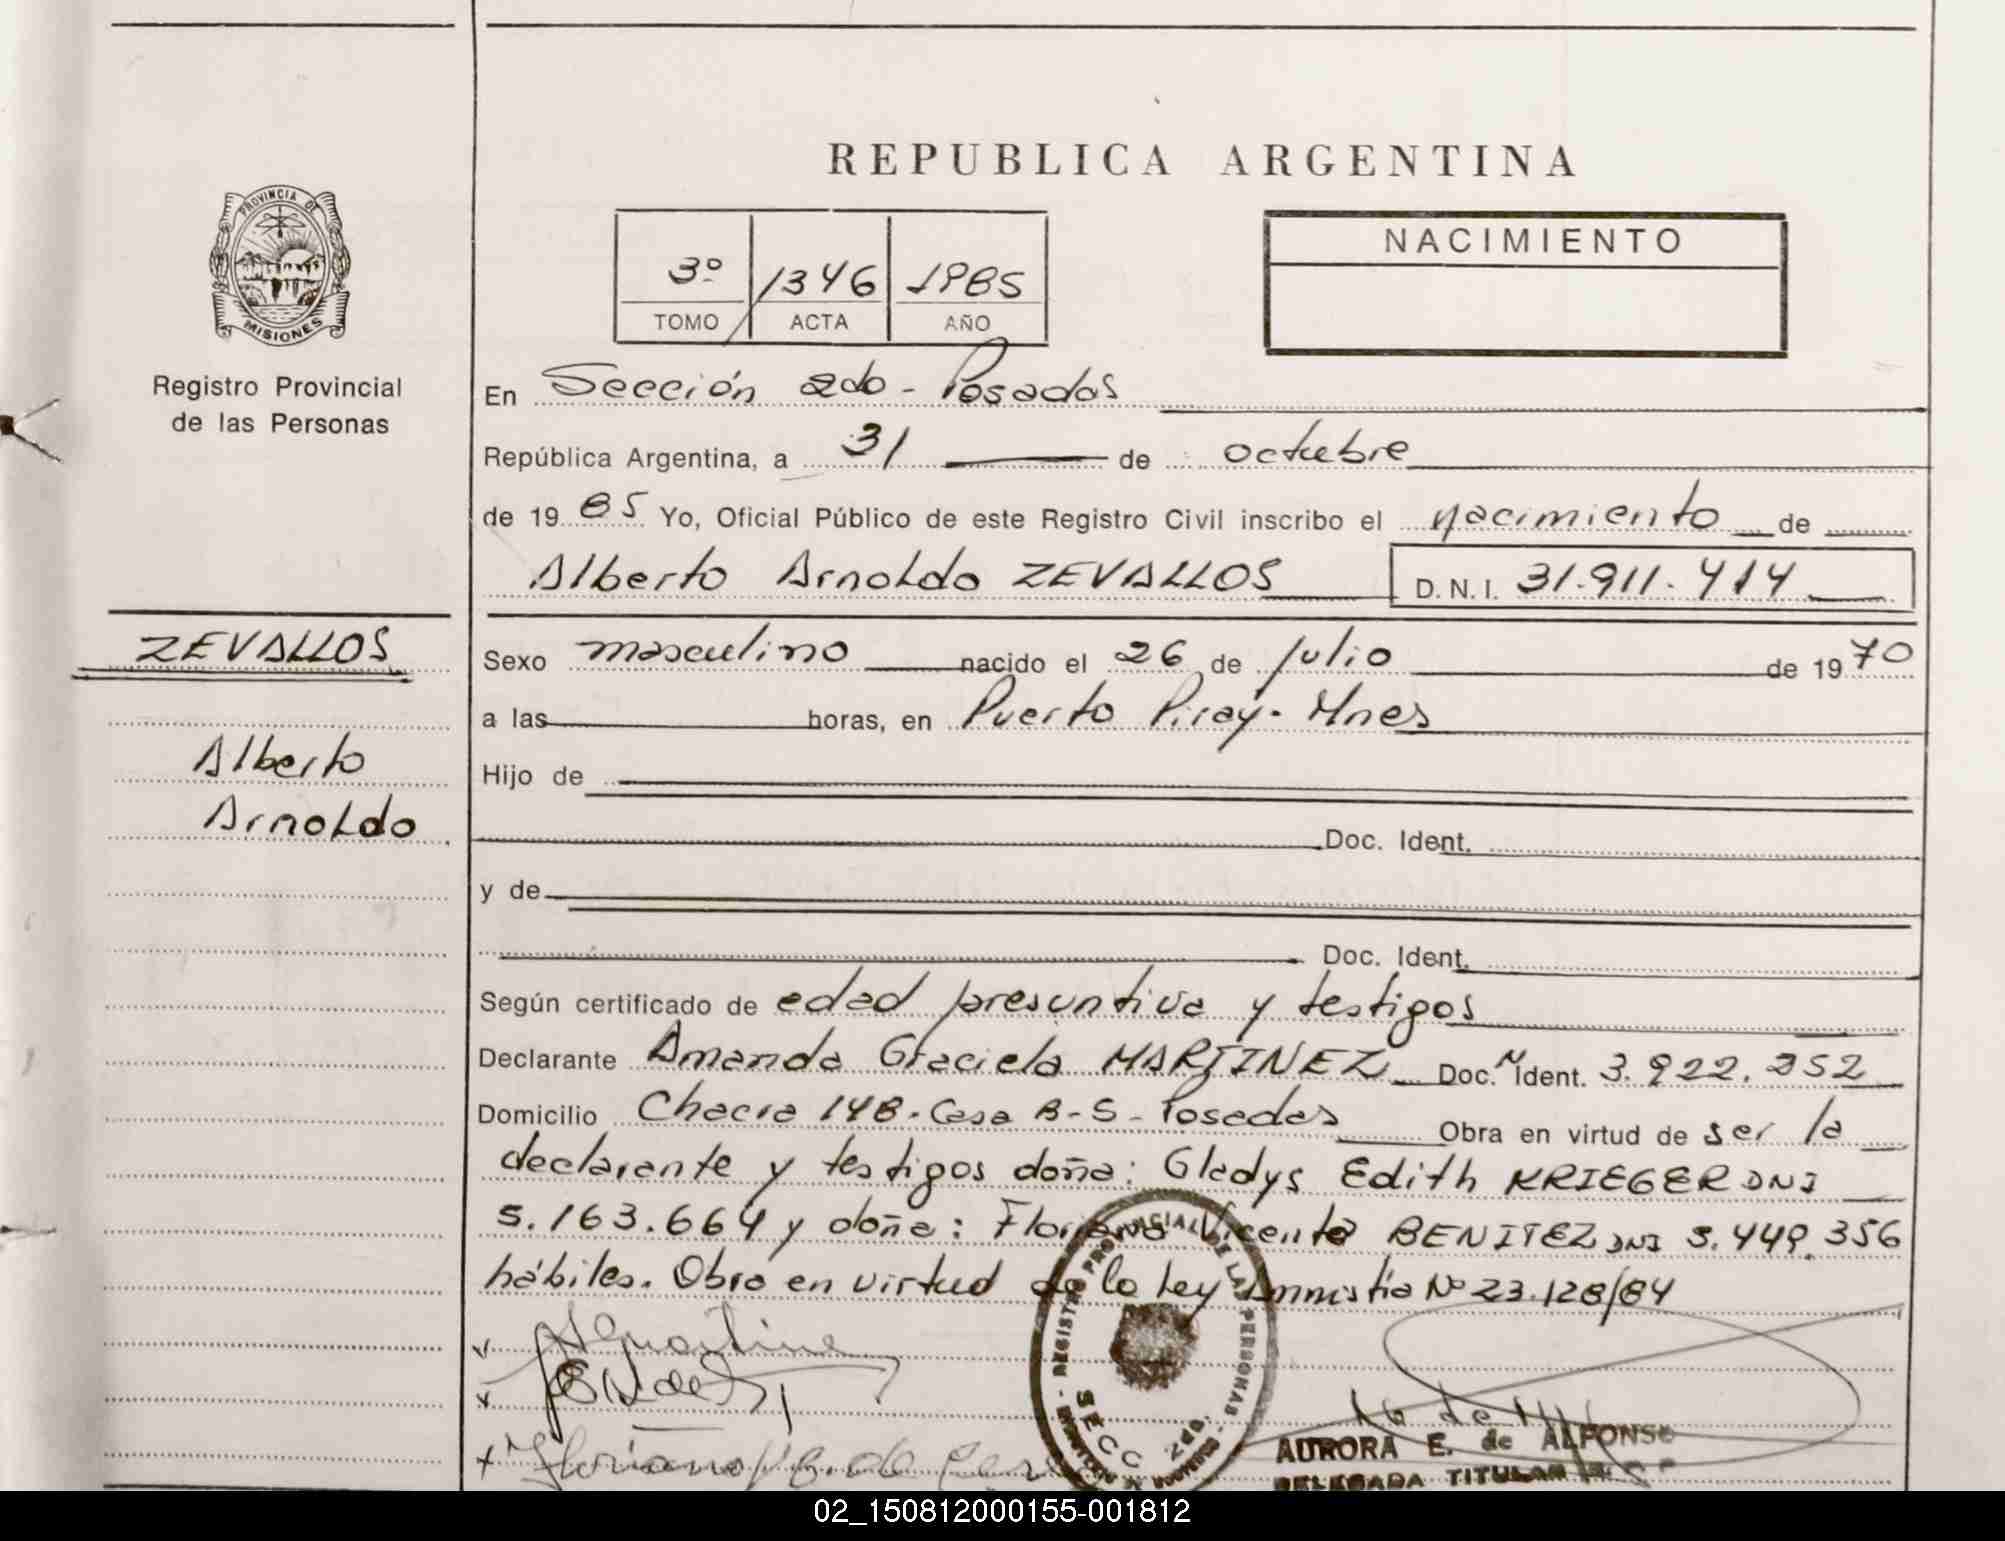 REPUBLICA ARGENTINA
PROVINCIA DE
MISIONES
Registro Provincial
de las Personas
3º 1346 1985
TOMO ACTA AÑO
NACIMIENTO
En Sección 2do - Posadas
República Argentina, a 31 de octubre
de 1985 Yo, Oficial Público de este Registro Civil inscribo el nacimiento de
Alberto Arnoldo ZEVALLOS D.N.I. 31.911.414
ZEVALLOS
Alberto
Arnoldo
Sexo masculino nacido el 26 de julio de 1970
a las horas, en Puerto Piray - Mnes
Hijo de
Doc. Ident.
y de
Doc. Ident.
Según certificado de edad presuntiva y testigos
Declarante Amanda Graciela MARTINEZ Doc. Ident. 3.922.252
Domicilio Chacra 148 - Casa B-5 - Posadas Obra en virtud de ser la
declarante y testigos doña: Gladys Edith KRIEGER DNI
5.163.664 y doña: Vicenta BENITEZ DNI 3.449.356
hábiles. Obra en virtud de la Ley Amnistía Nº 23.128/84
REGISTRO PROVINCIAL DE LAS PERSONAS
SECC 2da.
AURORA E. de ALFONSO
DELEGADA TITULAR
02_150812000155-001812